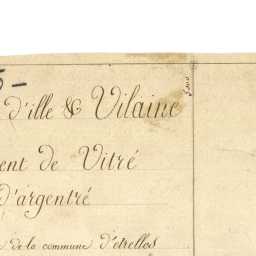 5-
d'ille & Vilaine
ent de Vitré
d'argentré
de la commune d'etrelles